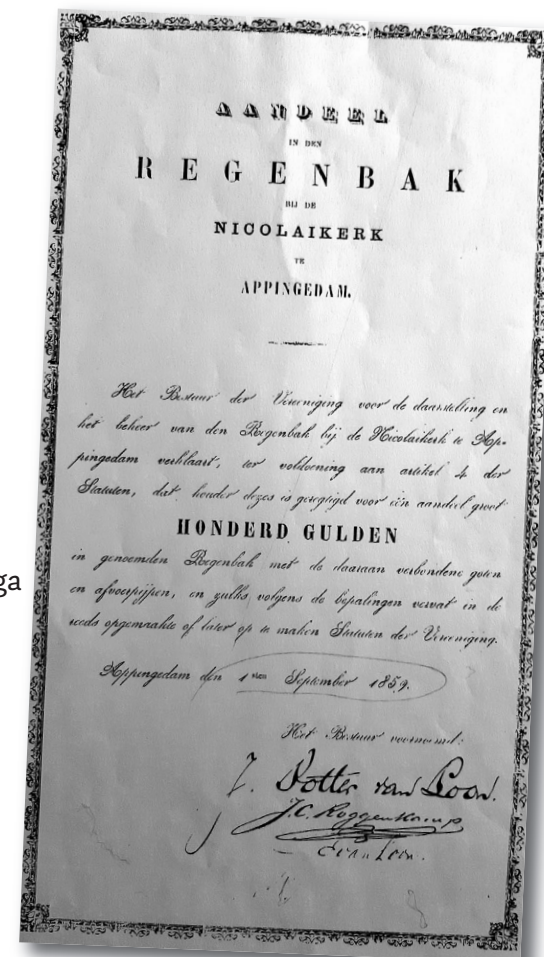 AANDEEL
IN DEN
REGENBAK
BIJ DE
NICOLAIKERK
TE
APPINGEDAM.
Het Bestuur der Vereeniging voor de daarstelling en
het beheer van den Regenbak bij de Nicolaikerk te Ap-
pingedam verklaart, ter voldoening aan artikel 4 der
Statuten, dat houder dezes is geregtigd voor één aandeel groot
HONDERD GULDEN
in genoemden Regenbak met de daaraan verbondene goten
en afvoerpijpen, en zulks volgens de bepalingen vervat in de
reeds opgemaakte of later op te maken Statuten der Vereeniging.
ga
Appingedam den 1sten September 1859.
Het Bestuur voornoemd:
J. Potter van Loon.
J.C. Roggenkamp
van Loon.